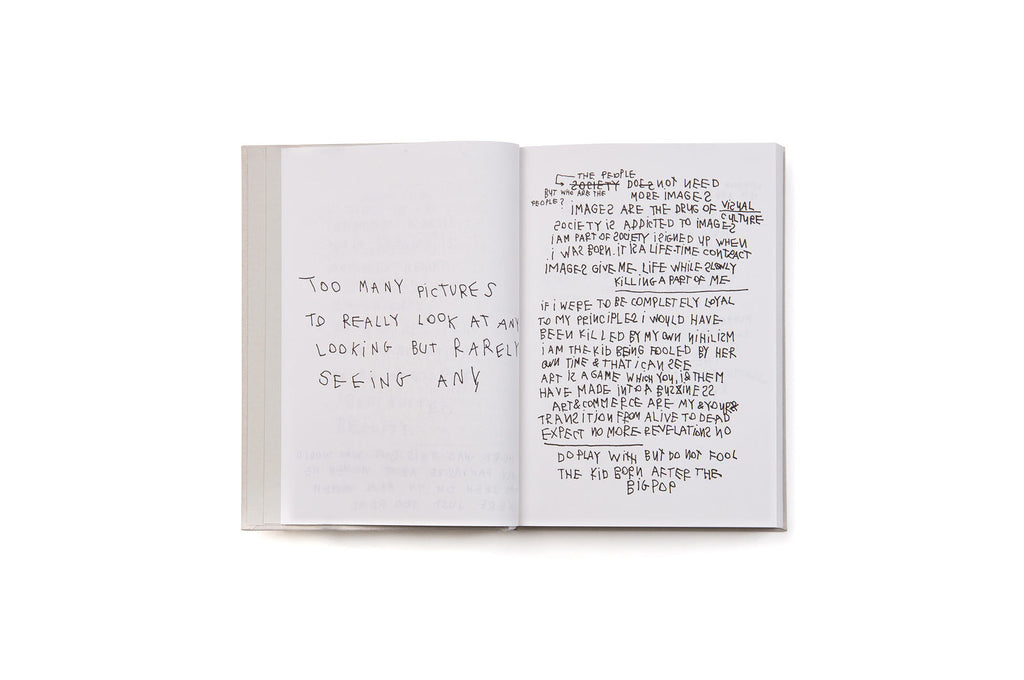 TOO MANY PICTURES
TO REALLY LOOK AT ANY
LOOKING BUT RARELY
SEEING ANY
THE PEOPLE
SOCIETY DOES NOT NEED
BUT WHO ARE THE
PEOPLE?
MORE IMAGES
IMAGES ARE THE DRUG OF VISUAL
CULTURE
SOCIETY IS ADDICTED TO IMAGES
I AM PART OF SOCIETY I SIGNED UP WHEN
I WAS BORN. IT IS A LIFE-TIME CONTRACT
IMAGES GIVE ME LIFE WHILE SLOWLY
KILLING A PART OF ME
IF I WERE TO BE COMPLETELY LOYAL
TO MY PRINCIPLES I WOULD HAVE
BEEN KILLED BY MY OWN NIHILISM
I AM THE KID BEING FOOLED BY HER
OWN TIME & THAT I CAN SEE
ART IS A GAME WHICH YOU, I & THEM
HAVE MADE INTO A BUSSINESS
ART & COMMERCE ARE MY & YOURS
TRANSITION FROM ALIVE TO DEAD
EXPECT NO MORE REVELATIONS NO
DO PLAY WITH BUT DO NOT FOOL
THE KID BORN AFTER THE
BIG POP